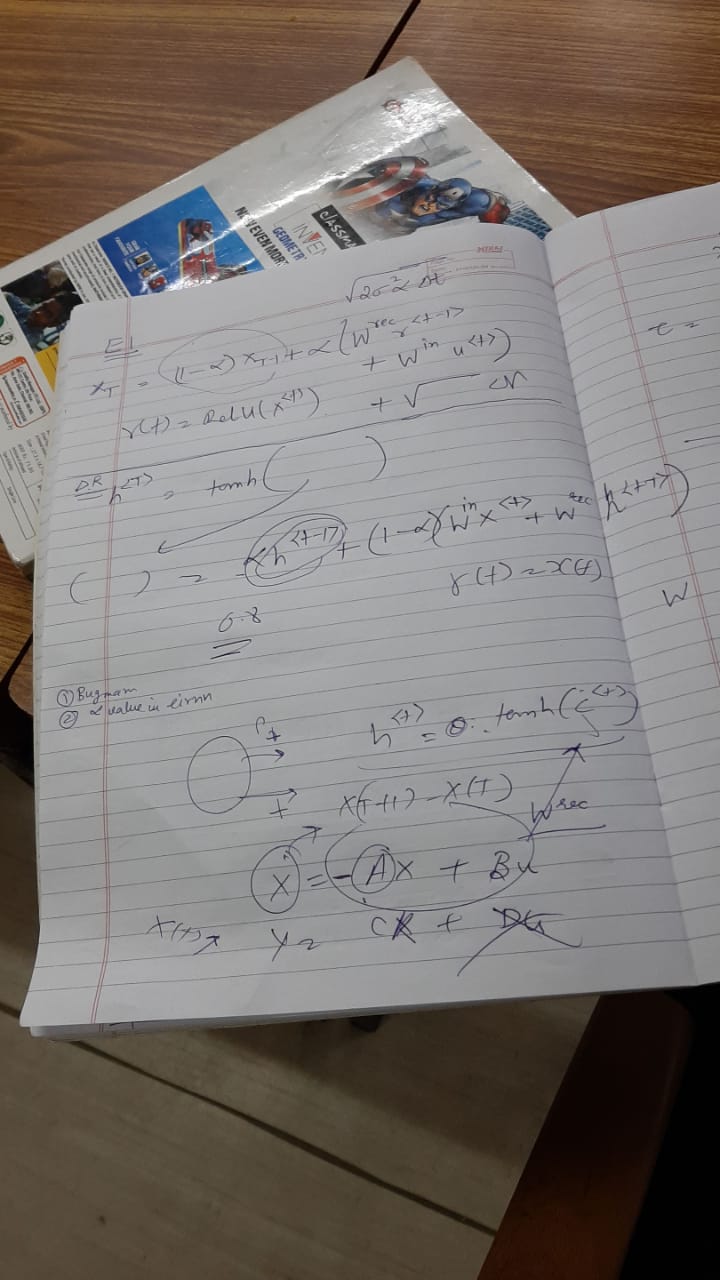 CLASSM
INVEN
GEOMETR
NOW EVEN MOR
√2σ²α Δt
EI
x_T = (1-α) x_T-1 + α (W^rec r^<t-1>
+ W^in u^<t>)
r(t) = ReLU(x^<t>) + √ N
h^<T> = tanh( )
( ) = αh^<t-1> + (1-α)(W^in x^<t> + W^rec h^<t-1>)
0.8
r(t) = x(t)
W
①
② α value in eirnn
h^<t> = θ. tanh( ^<t>)
x(T+1) - x(T)
W^rec
Ẋ = -AX + Bu
x(t)
Y = CX +